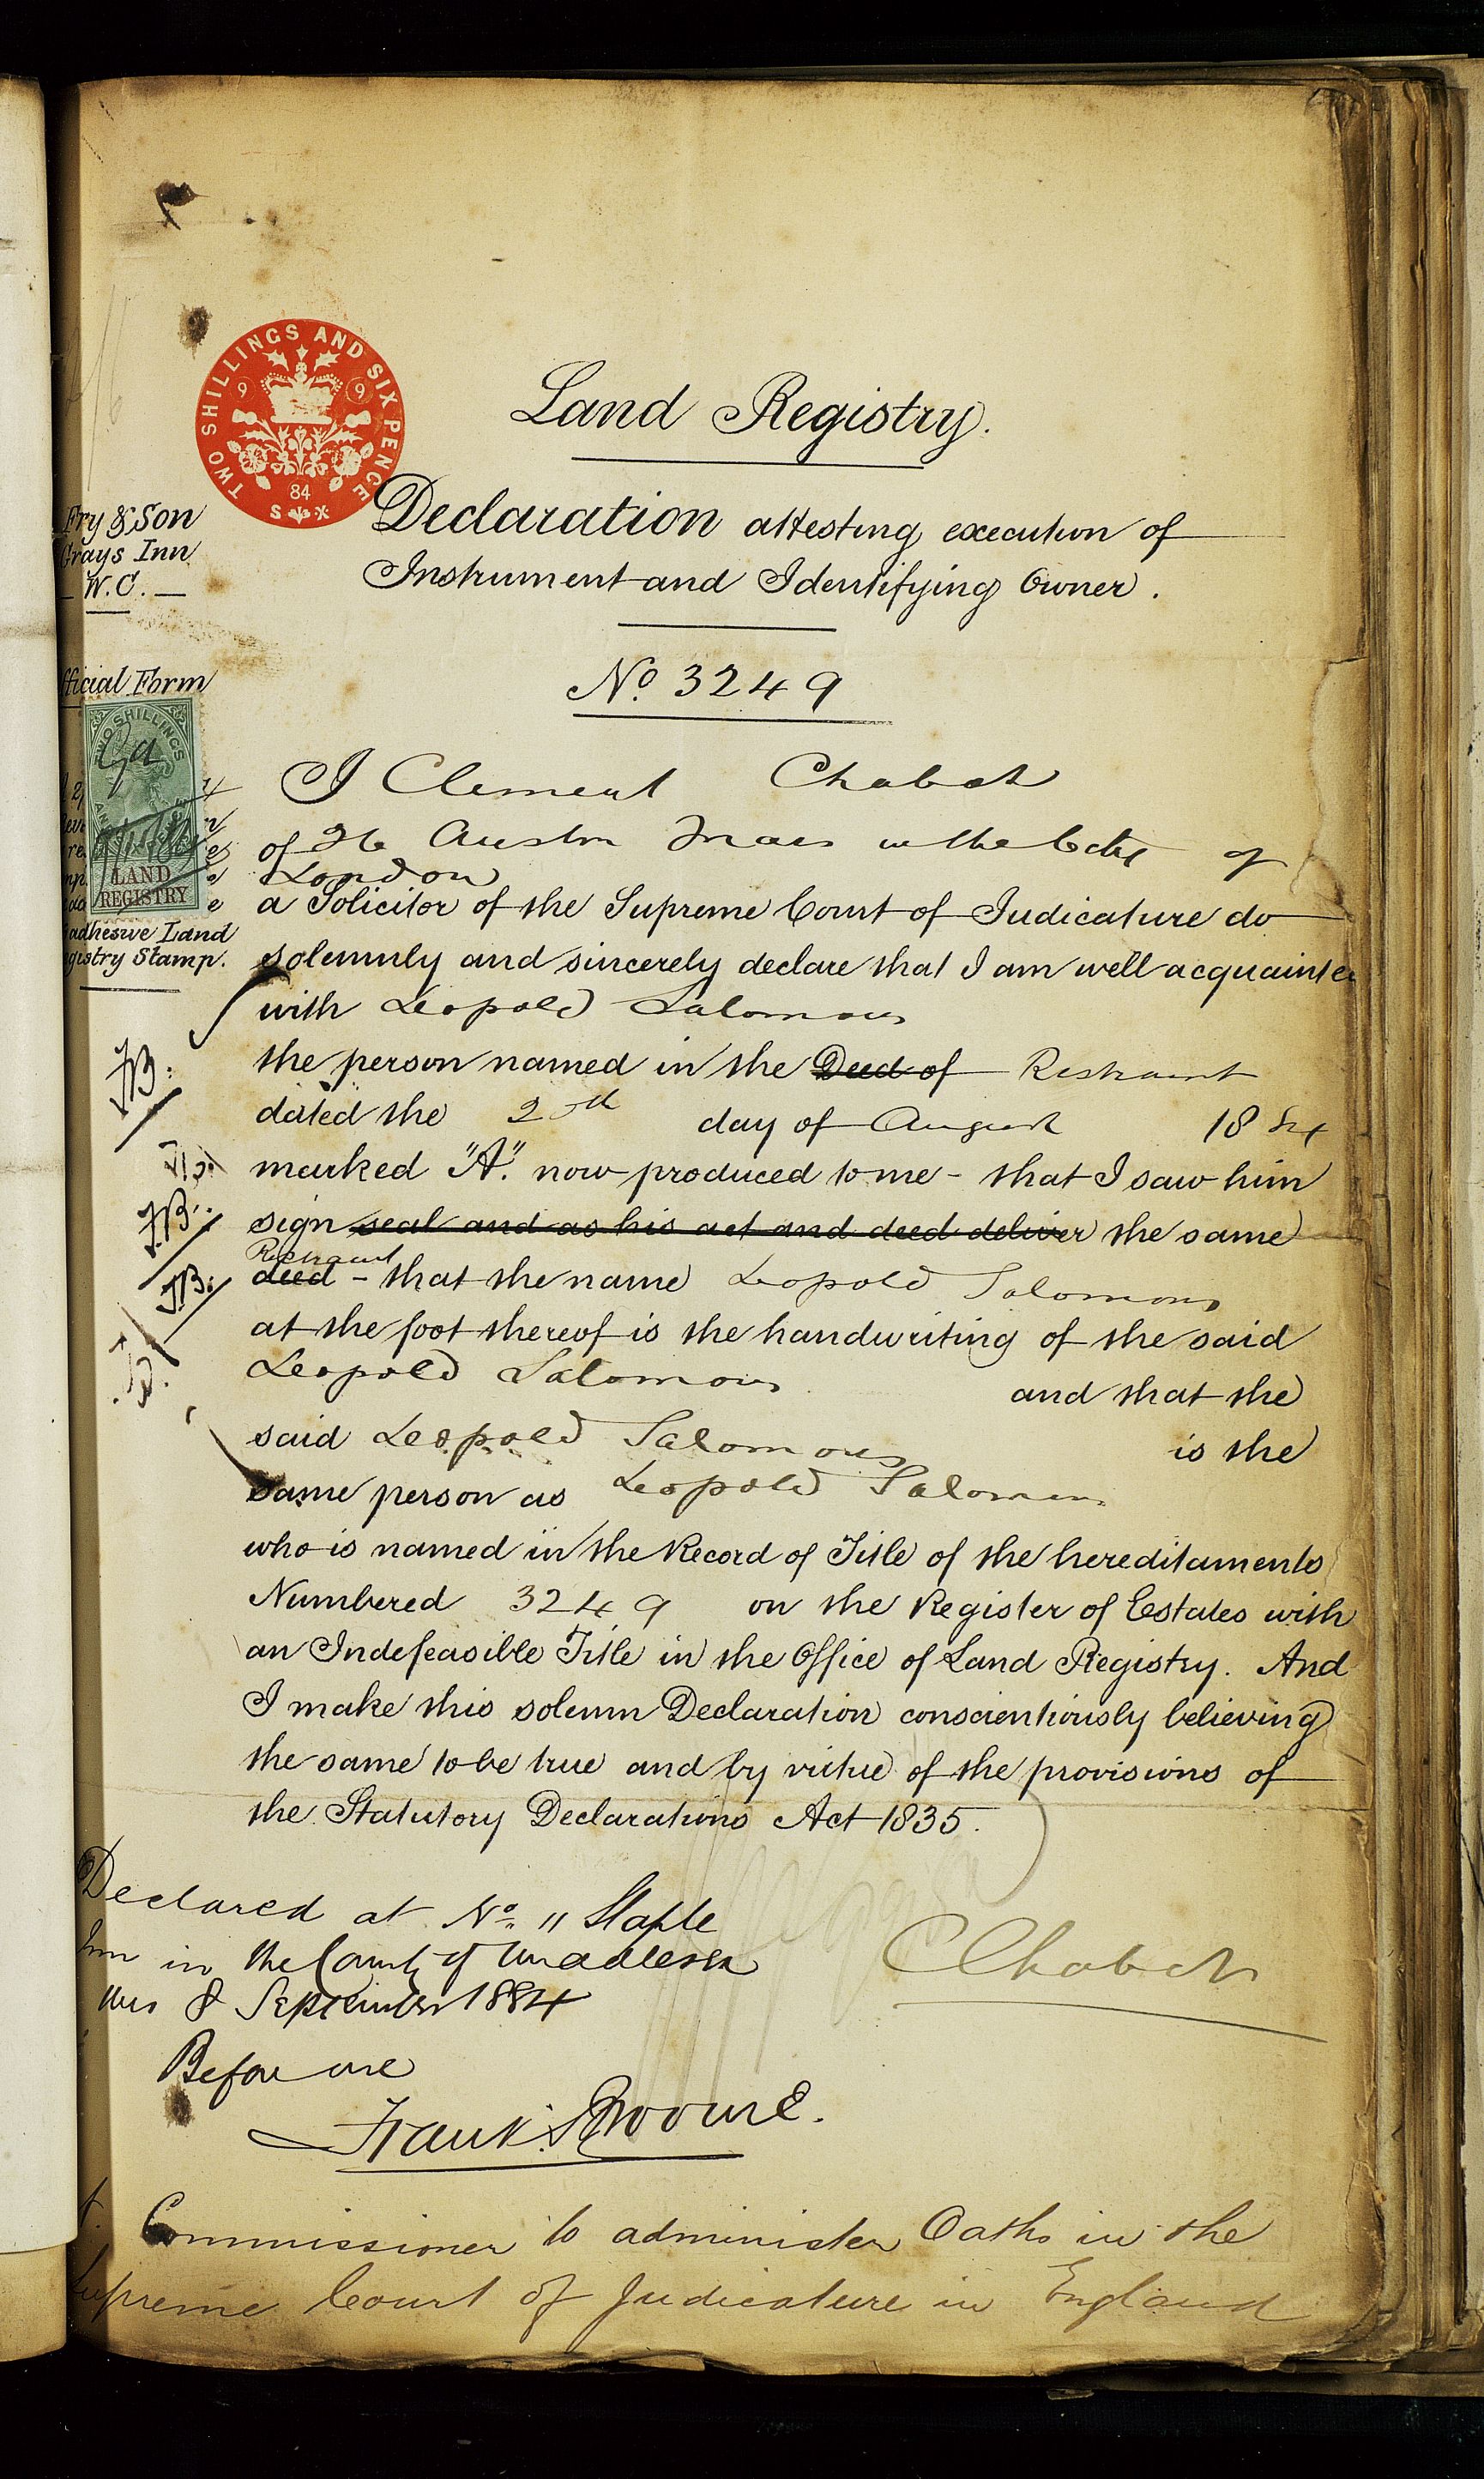 TWO SHILLINGS AND SIX PENCE
9 9
84
S X
Land Registry.
Declaration attesting execution of
Instrument and Identifying Owner.
No. 3249
Fry & Son
Grays Inn
W.C.
fficial Form
TWO SHILLINGS
LAND
REGISTRY
adhesive Land
gistry Stamp.
I Clement Chabot
of 26 Austin Friars in the City of
London
a Solicitor of the Supreme Court of Judicature do
solemnly and sincerely declare that I am well acquainte
with Leopold Salomons
the person named in the Deed of Restraint
dated the day of August 1884
marked "A". now produced to me - that I saw him
sign seal and as his act and deed deliver the same
Restraint
deed - that the name Leopold Salomons
at the foot thereof is the handwriting of the said
Leopold Salomons and that the
said Leopold Salomons is the
same person as Leopold Salomons
who is named in the Record of Title of the hereditaments
Numbered 3249 on the Register of Estates with
an Indefeasible Title in the Office of Land Registry. And
I make this solemn Declaration conscientiously believing
the same to be true and by virtue of the provisions of
the Statutory Declarations Act 1835.
JB.
JB.
JB.
JB.
JB.
Declared at No. 11 Staple
Inn in the County of Middlesex
this 8 September 1884
CChabot
Before me
Frank
Commissioner to administer Oaths in the
Supreme Court of Judicature in England